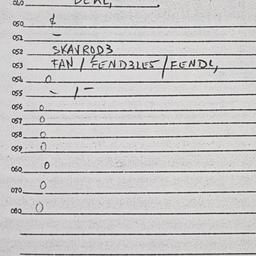 040 DEAL,
050 &
051 -
052 SKAVROD3
053 FAN / FEND3LES / FENDL,
054 0
055 - / -
056 0
057 0
058 0
059 0
060 0
070 0
080 0